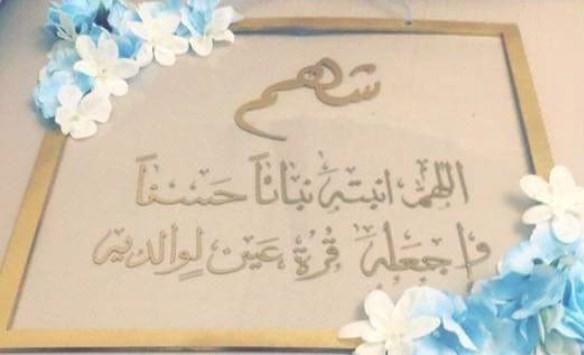 شهم
اللهم انبته نباتاً حسناً
واجعله قرة عين لوالديه